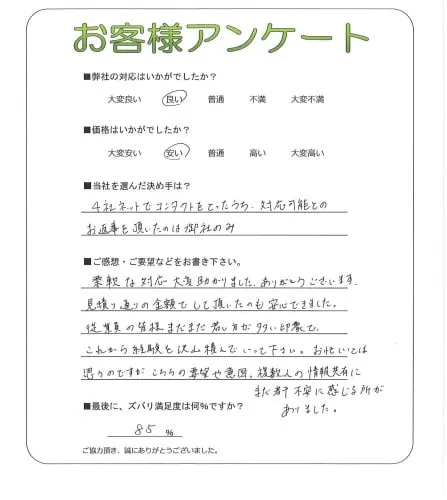 お客様アンケート
■弊社の対応はいかがでしたか?
大変良い 良い 普通 不満 大変不満
■価格はいかがでしたか?
大変安い 安い 普通 高い 大変高い
■当社を選んだ決め手は?
4社ネットでコンタクトをとったうち、対応可能との
お返事を頂いたのは御社のみ
■ご感想・ご要望などをお書き下さい。
柔軟な対応大変助かりました。ありがとうございます。
見積り通りの金額でして頂いたのも安心できました。
従業員の皆様まだまだ若い方が多い印象で、
これから経験を沢山積んでいって下さい。お忙しいとは
思うのですがこちらの要望や意図、複数人の情報共有に
まだ若干不安に感じる所が
ありました。
■最後に、ズバリ満足度は何%ですか?
85 %
ご協力頂き、誠にありがとうございました。